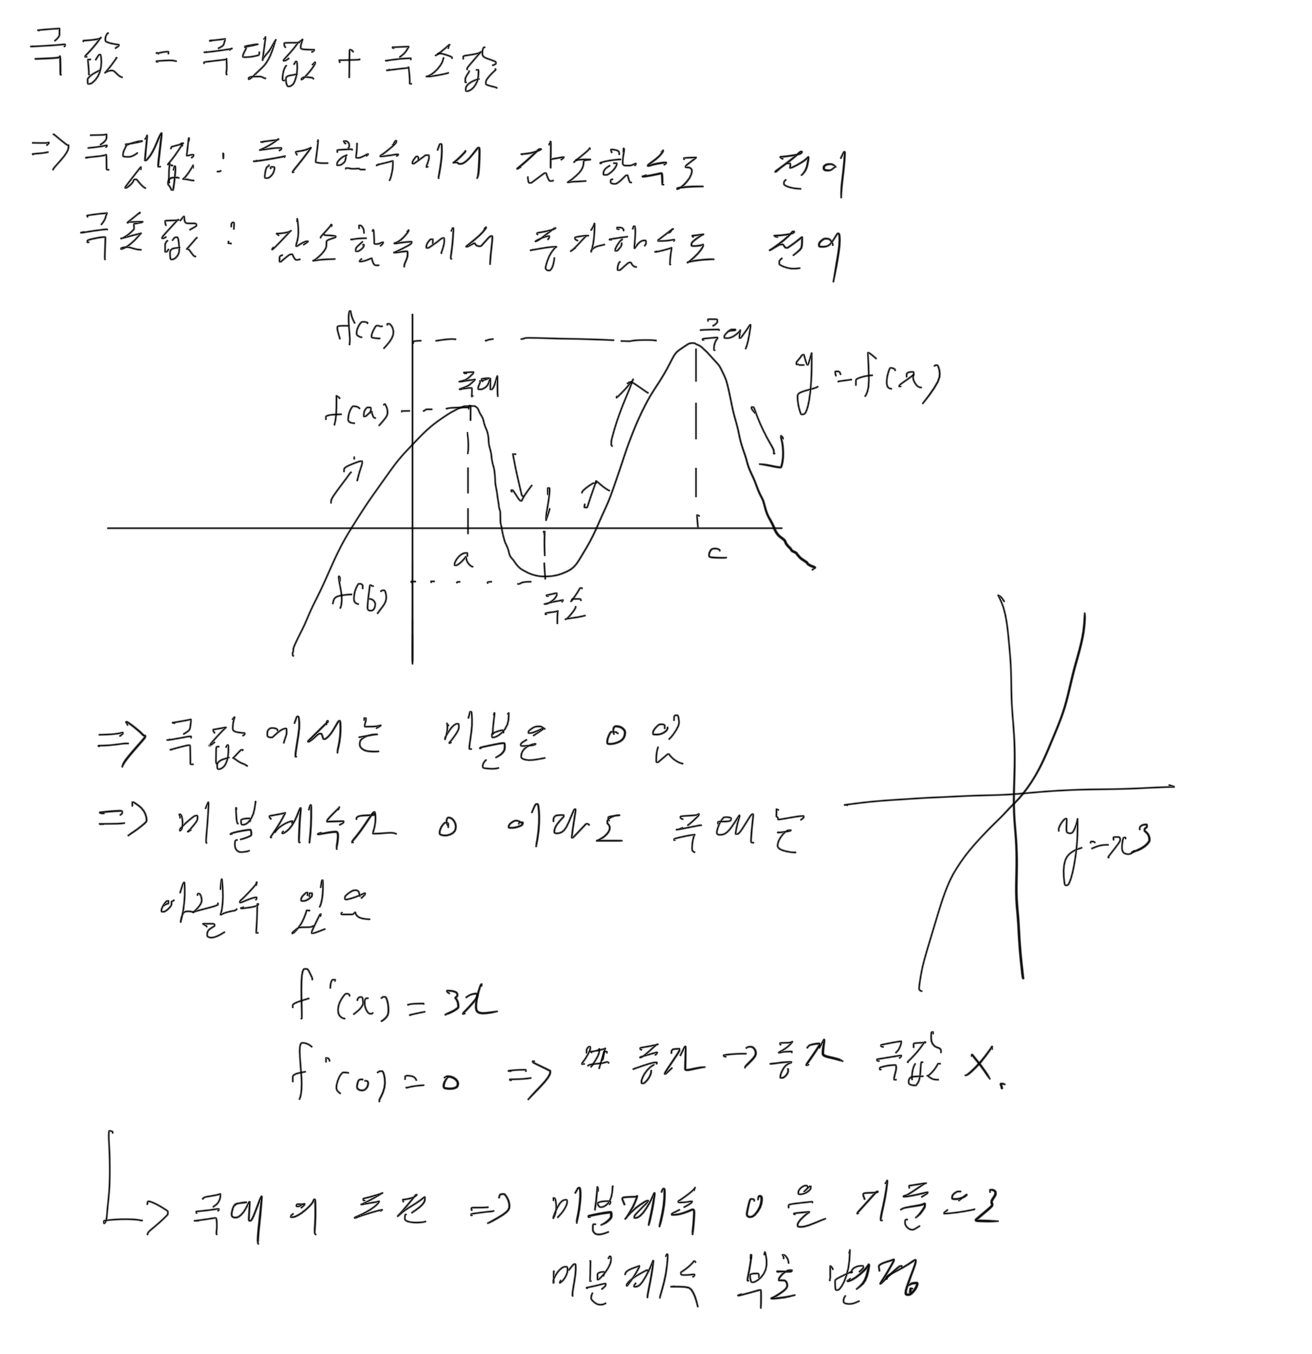 극값 = 극댓값 + 극소값
=> 극댓값 : 증가함수에서 감소함수로 전이
극솟값 : 감소함수에서 증가함수로 전이
f(c)
극대
y=f(x)
극대
f(a)
a
c
f(b)
극소
=> 극값에서는 미분은 0 임
=> 미분계수가 0 이라도 극대는
아닐수 있으
y=x3
f'(x) = 3x
f'(0) = 0 => 증가 → 증가 극값 X.
극대의 조건 => 미분계수 0을 기준으로
미분계수 부호 변경